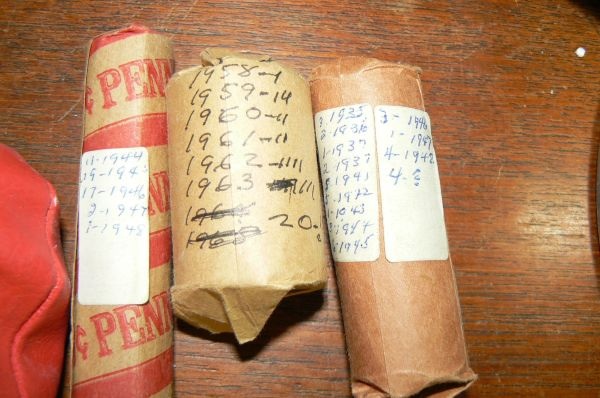 ¢ PENN
11-1944
19-194
17-1946
2-1947
1-1948
¢ PENN
1958-1
1959-14
1960-11
1961-11
1962-1111
1963
1964
1965
20-
2-1935
1936
1-1937
2 1937
1941
1942
1-1943
1944
1945
3-1946
1-1947
4-1948
4-?